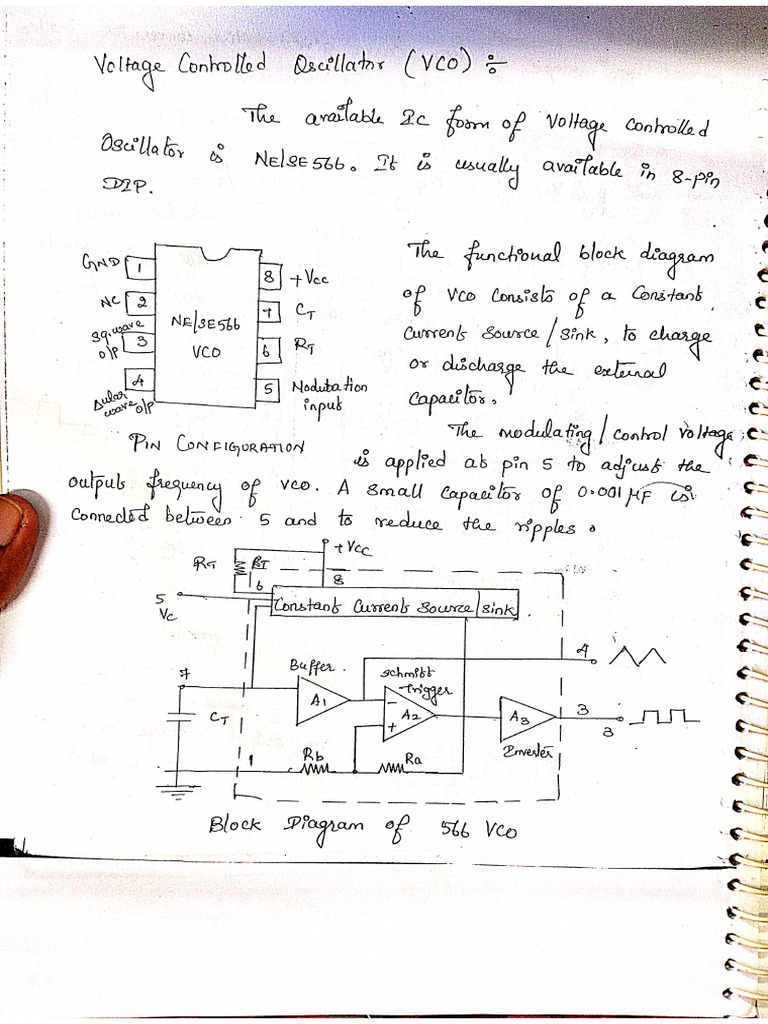 Voltage Controlled Oscillator (VCO) ÷
The available IC form of Voltage controlled
Oscillator is NE/SE566. It is usually available in 8-pin
DIP.
GND 1
NC 2
Sq.wave O/P 3
Δular wave O/P 4
NE/SE566
VCO
8 +Vcc
7 CT
6 RT
5 Modutation
input
PIN CONFIGURATION
The functional block diagram
of VCO consists of a Constant
Current Source / Sink, to charge
or discharge the external
capacitor.
The modulating / control voltage
is applied at pin 5 to adjust the
output frequency of VCO. A small capacitor of 0.001 μF is
connected between 5 and to reduce the ripples.
+VCC
RT RT
6 8
5
Vc
Constant Current Source/sink
4
7
Buffer.
Schmitt
Trigger
CT
A1
A2
A3
3
3
Inverter
1
Rb
Ra
-
+
Block Diagram of 566 VCO